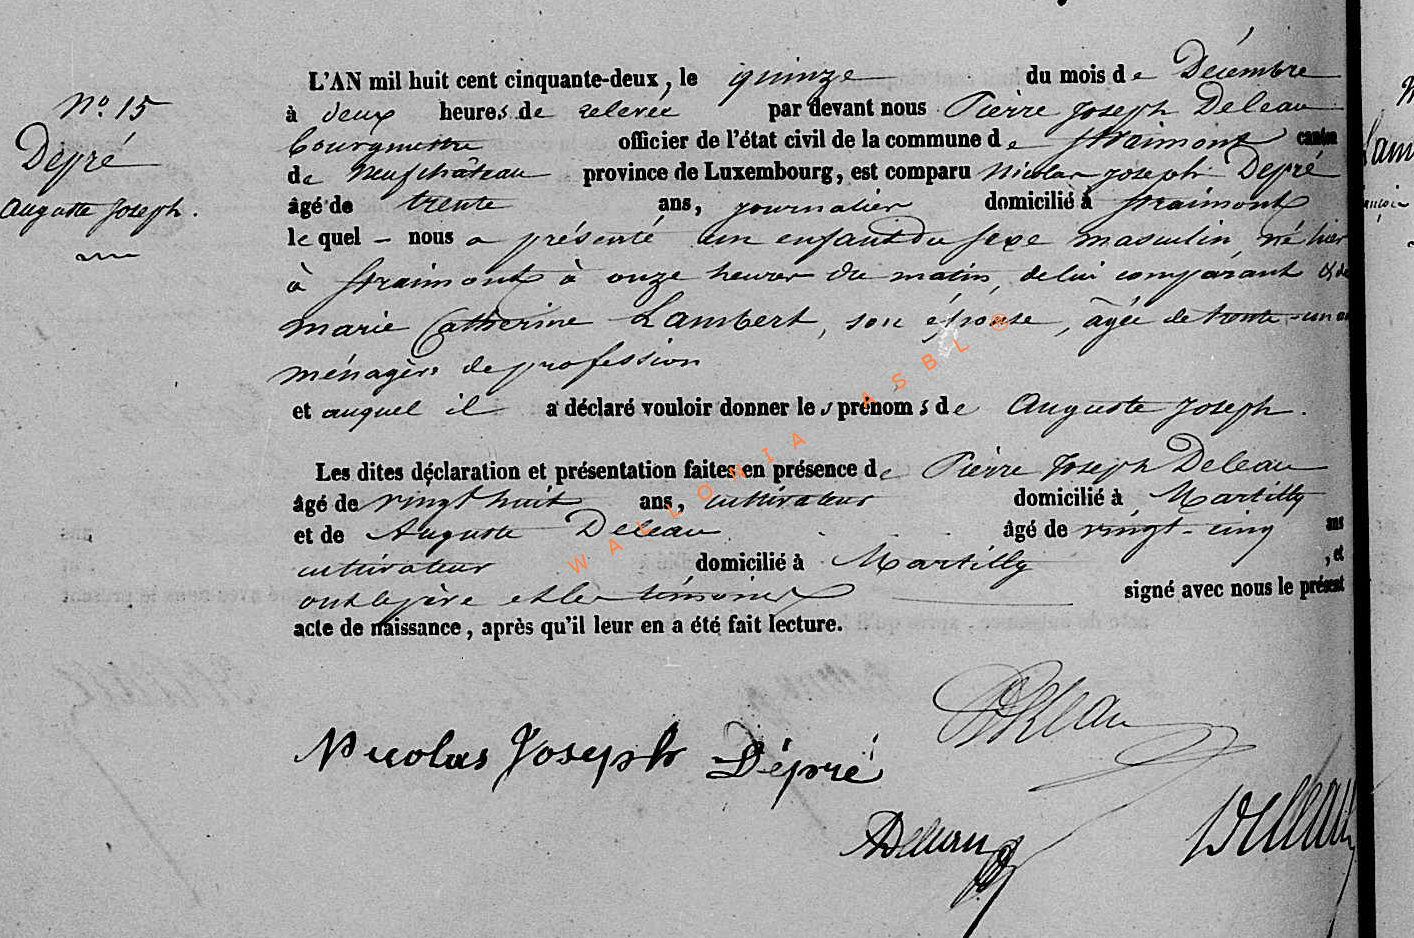 N.° 15
Depré
Auguste Joseph.
L'AN mil huit cent cinquante-deux, le quinze du mois de Décembre
à deux heures de relevée par devant nous Pierre Joseph Deleau
bourgmestre officier de l'état civil de la commune de Straimont canton
de Neufchâteau province de Luxembourg, est comparu Nicolas Joseph Depré
âgé de trente ans, journalier domicilié à Straimont
le quel nous a présenté un enfant du sexe masculin, né hier
à Straimont à onze heures du matin, de lui comparant & de
Marie Catherine Lambert, son épouse, âgée de trente-un
ménagère de profession
et auquel il a déclaré vouloir donner les prénoms de Auguste Joseph.
Les dites déclaration et présentation faites en présence de Pierre Joseph Deleau
âgé de vingt huit ans, cultivateur domicilié à Martilly
et de Auguste Deleau âgé de vingt-cinq ans
cultivateur domicilié à Martilly , et
ont le père et les témoins signé avec nous le présent
acte de naissance, après qu'il leur en a été fait lecture.
Nicolas Joseph Dépré
ADeleau
Deleau
WALLONIA ASBL ©